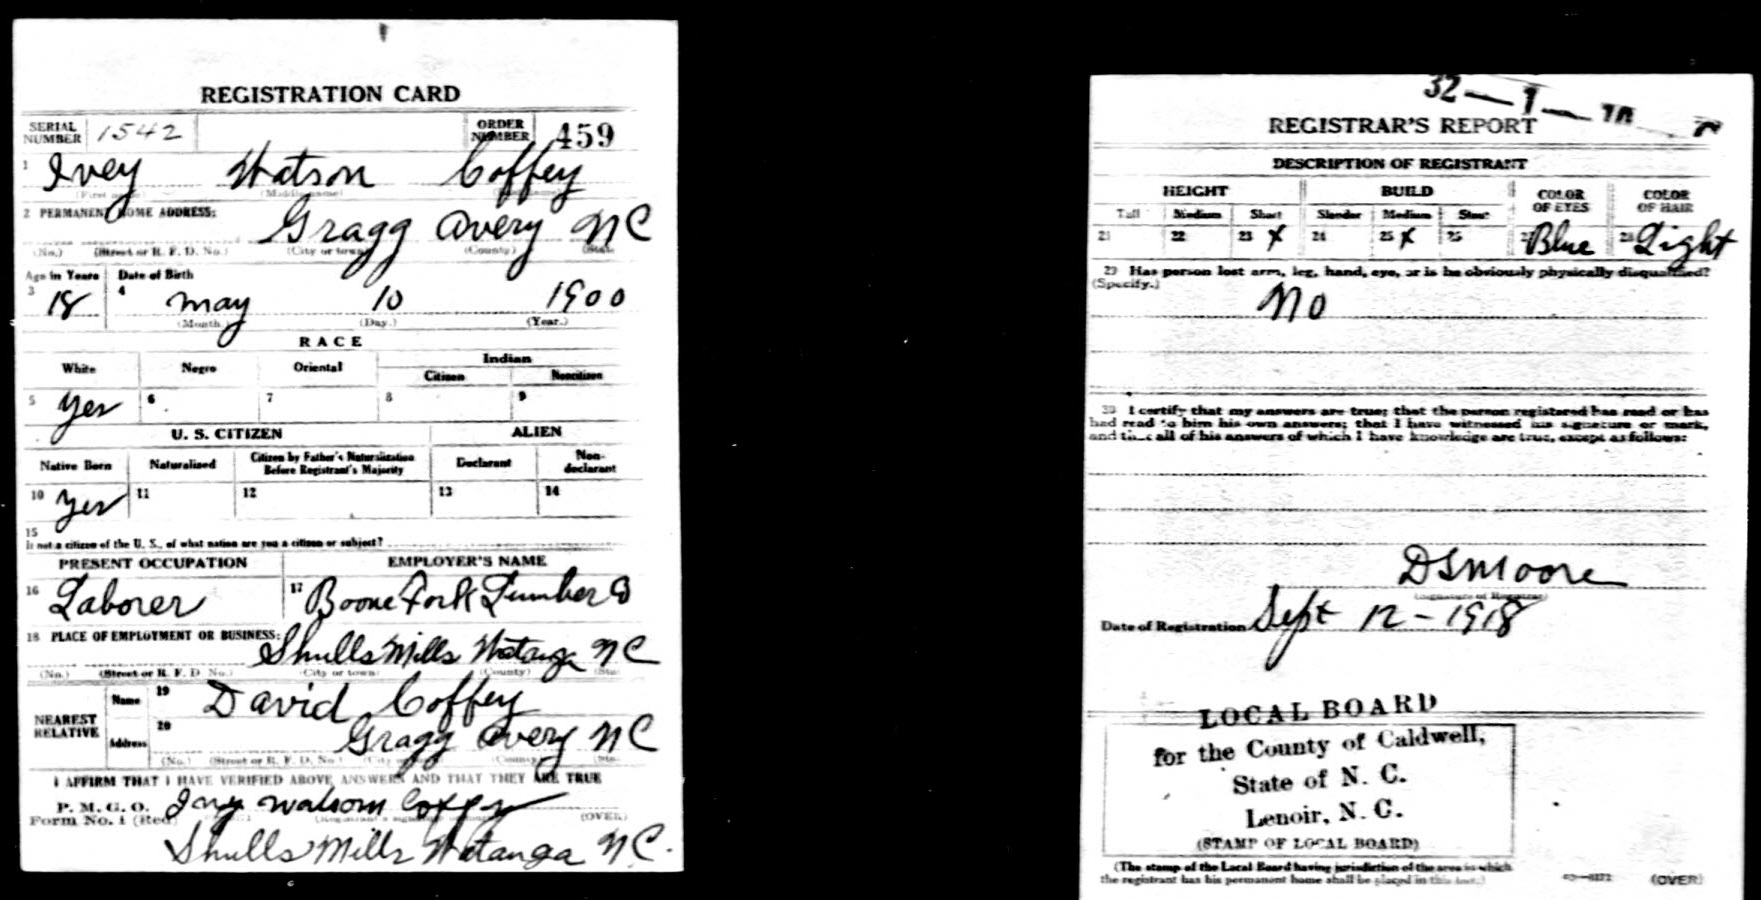 REGISTRATION CARD
SERIAL NUMBER 1542 ORDER NUMBER 459
1 Ivey Watson Coffey
(First name) (Middle name)
2 PERMANENT HOME ADDRESS:
Gragg Avery NC
(No.) (Street or R. F. D. No.) (City or town) (County) (State)
Age in Years Date of Birth
3 18 4 May 10 1900
(Month.) (Day.) (Year.)
RACE
White Negro Oriental Indian
Citizen Noncitizen
5 Yes 6 7 8 9
U. S. CITIZEN ALIEN
Native Born Naturalized Citizen by Father's Naturalization Before Registrant's Majority Declarant Non-declarant
10 Yes 11 12 13 14
15
If not a citizen of the U. S., of what nation are you a citizen or subject?
PRESENT OCCUPATION EMPLOYER'S NAME
16 Laborer 17 Boone Fork Lumber Co
18 PLACE OF EMPLOYMENT OR BUSINESS:
Shulls Mills Watauga NC
(No.) (Street or R. F. D. No.) (City or town) (County) (State)
NEAREST RELATIVE Name 19 David Coffey
Address 20 Gragg Avery NC
(No.) (Street or R. F. D. No.) (City or town) (County) (State)
I AFFIRM THAT I HAVE VERIFIED ABOVE ANSWERS AND THAT THEY ARE TRUE
P. M. G. O.
Form No. 1 (Red) Ivy Watson Coffey (OVER)
Shulls Mills Watauga NC.
32—1—10
REGISTRAR'S REPORT
DESCRIPTION OF REGISTRANT
HEIGHT BUILD COLOR OF EYES COLOR OF HAIR
Tall Medium Short Slender Medium Stout
21 22 23 X 24 25 X 26 27 Blue 28 Light
29 Has person lost arm, leg, hand, eye, or is he obviously physically disqualified?
(Specify.) No
30 I certify that my answers are true; that the person registered has read or has
had read to him his own answers; that I have witnessed his signature or mark,
and that all of his answers of which I have knowledge are true, except as follows:
D S Moore
(Signature of Registrar)
Date of Registration Sept 12 - 1918
LOCAL BOARD
for the County of Caldwell,
State of N. C.
Lenoir, N. C.
(STAMP OF LOCAL BOARD)
(The stamp of the Local Board having jurisdiction of the area in which
the registrant has his permanent home shall be placed in this box.)
(OVER)